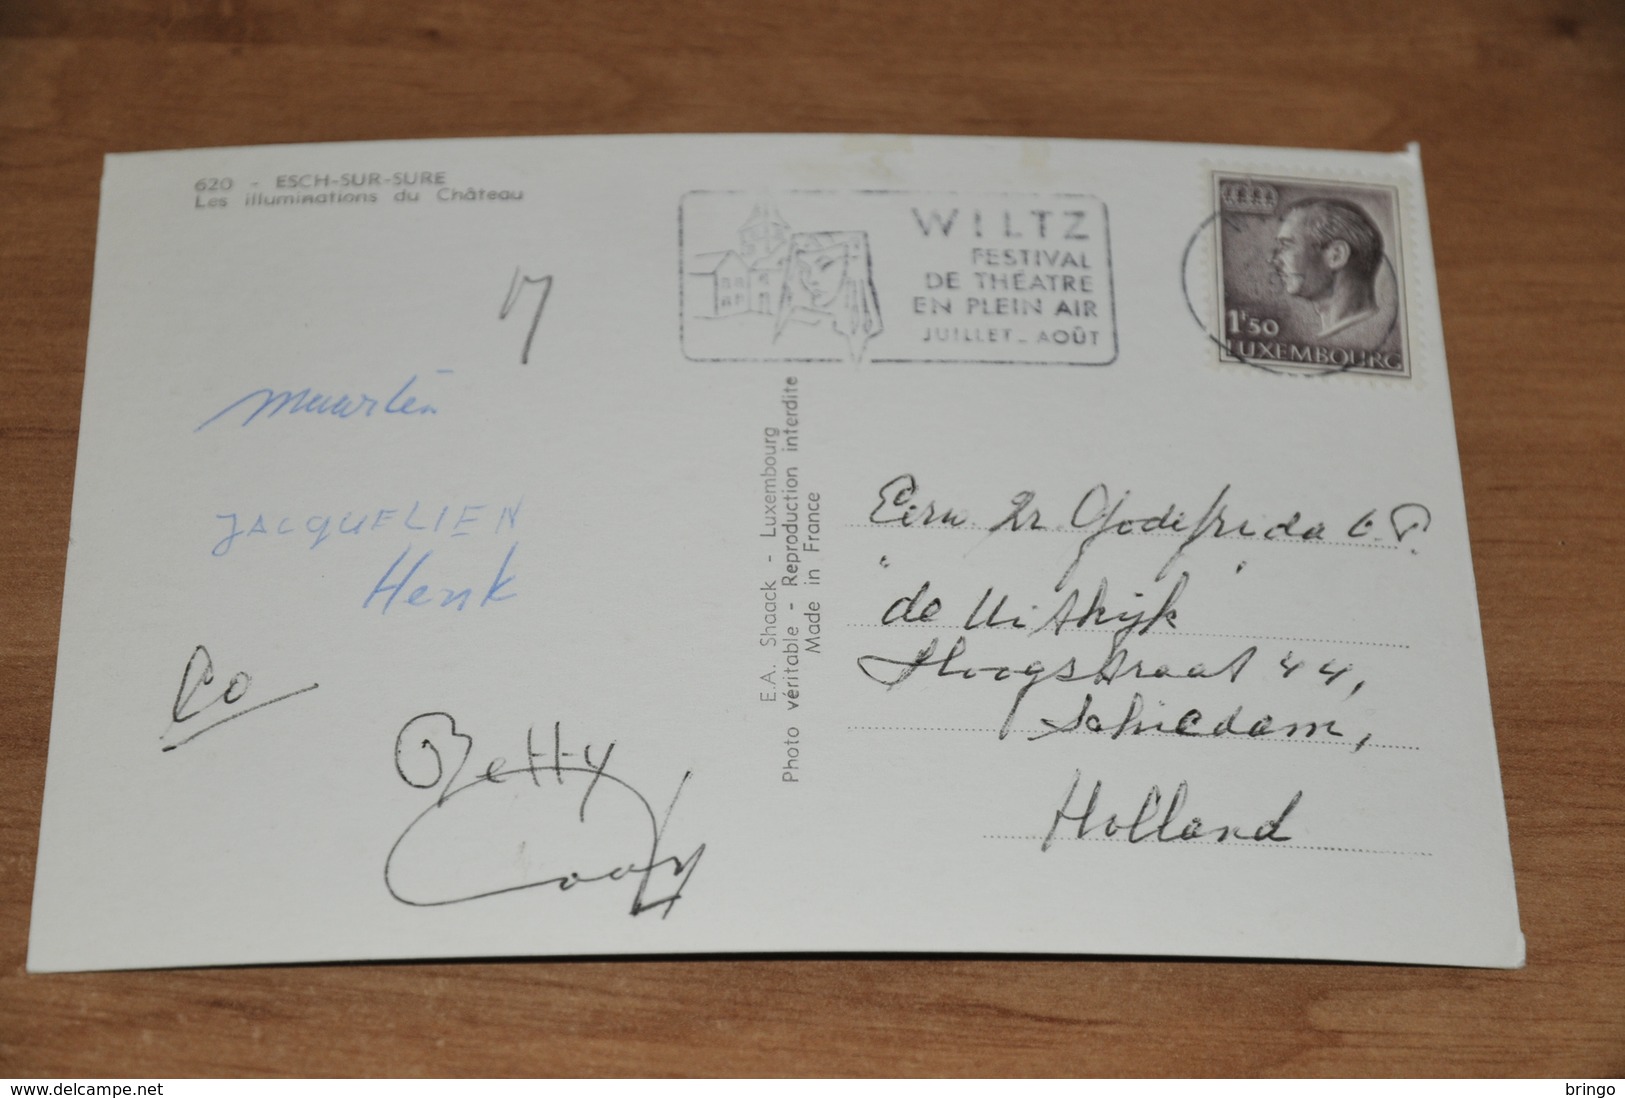 620 - ESCH-SUR-SURE
Les illuminations du Château
WILTZ
FESTIVAL
DE THÉATRE
EN PLEIN AIR
JUILLET - AOÛT
1F50
LUXEMBOURG
maarten
JACQUELIEN
Henk
Co
Betty
E.A. Shaack - Luxembourg
Photo véritable - Reproduction interdite
Made in France
Eerw. Zr Godefrida
"de Uitkijk"
Hoogstraat 44,
Schiedam,
Holland
www.delcampe.net
bringo